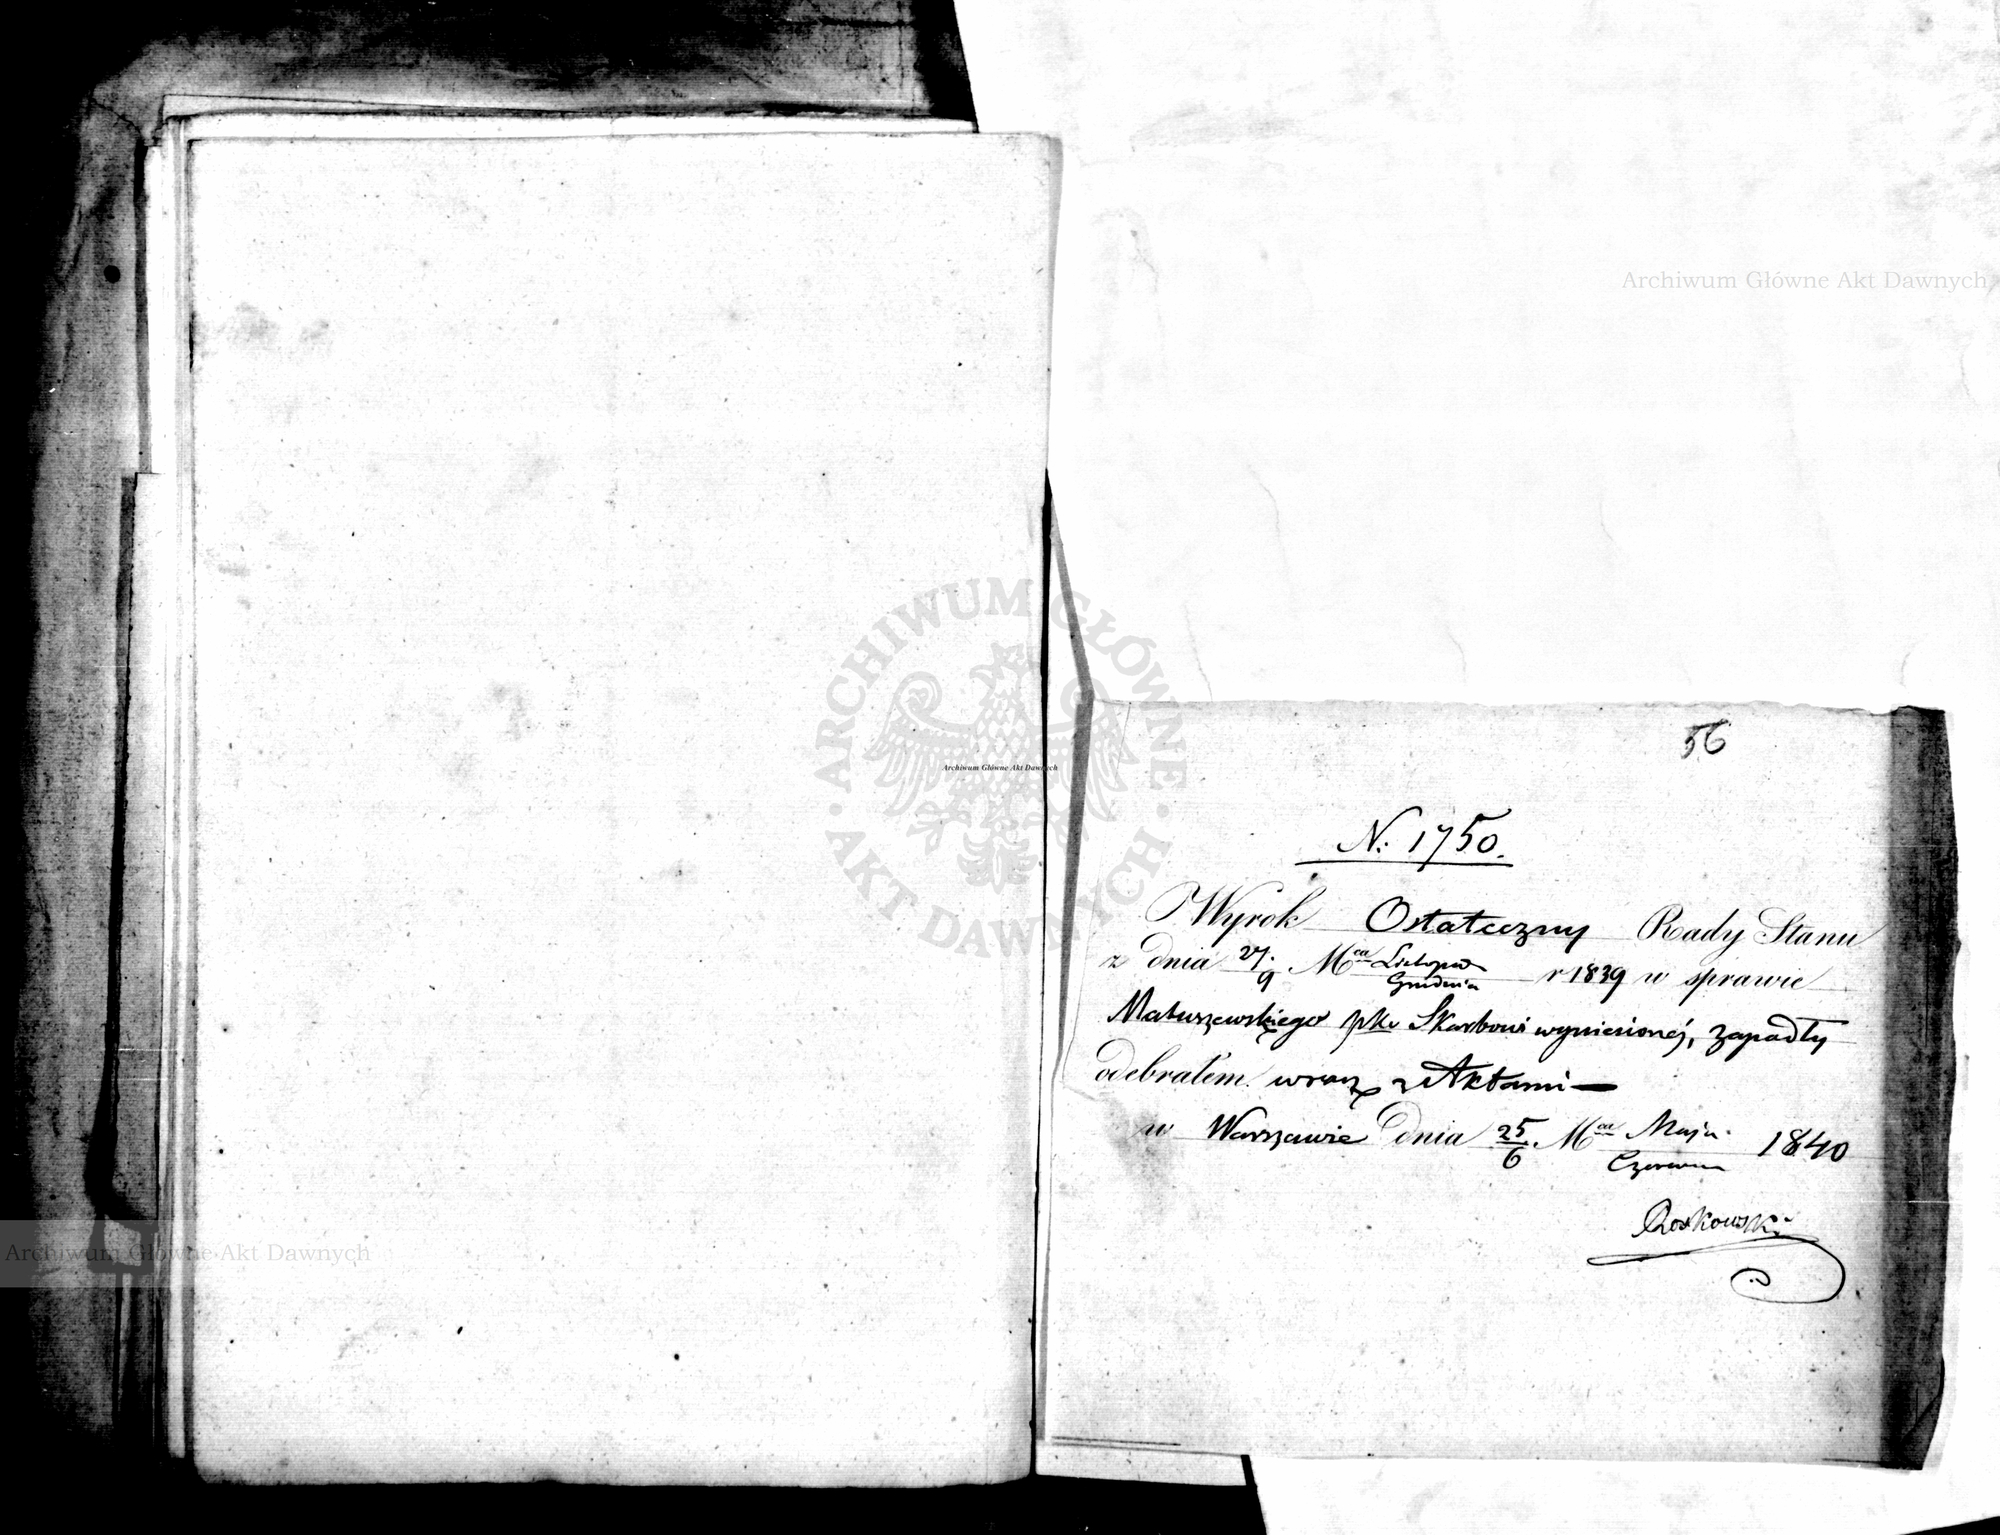 56
N: 1750.
Wyrok Ostateczny Rady Stanu
z dnia 27/9 Mca Listopad/Grudnia r 1839 w sprawie
Matuszewskiego pko Skarbowi wyniesionej, zapadły
odebrałem wraz z Aktami —
w Warszawie dnia 25/6. Mca Maja/Czerwca 1840
Roskowski
ARCHIWUM GŁÓWNE · AKT DAWNYCH ·
Archiwum Główne Akt Dawnych
Archiwum Główne Akt Dawnych
Archiwum Główne Akt Dawnych